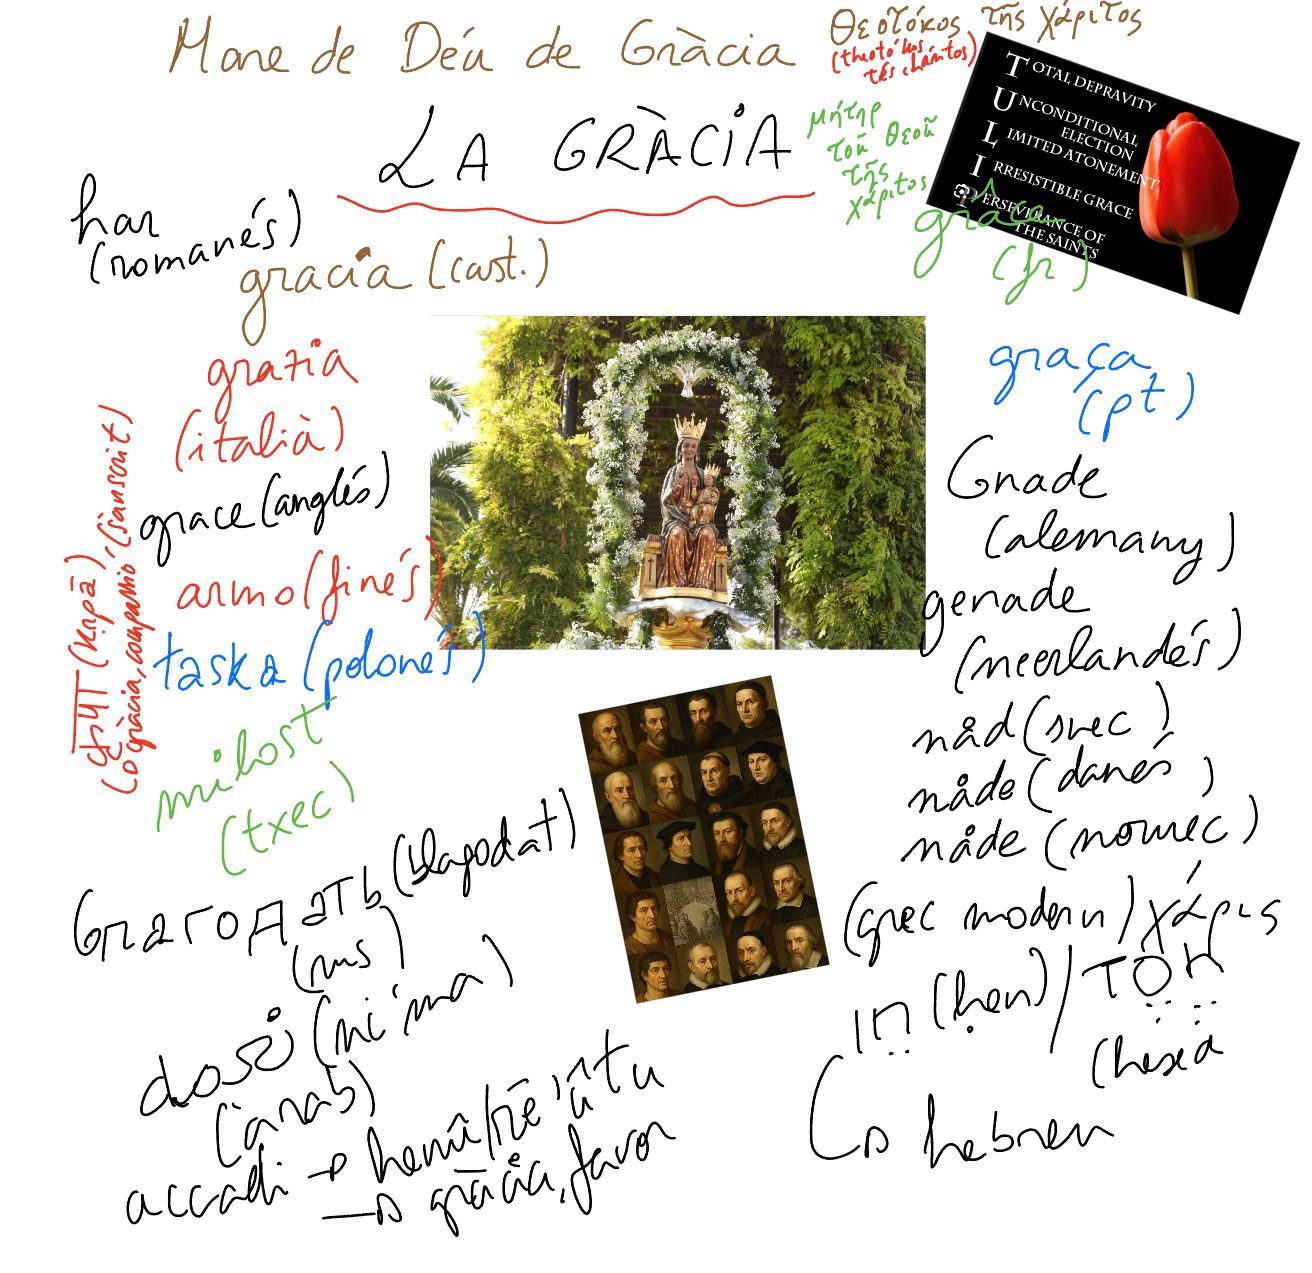 Mare de Déu de Gràcia
Θεοτόκος τῆς χάριτος
(theotókos
tés cháritos)
LA GRÀCIA
μήτηρ
τοῦ θεοῦ
τῆς
χάριτος
TOTAL DEPRAVITY
UNCONDITIONAL
ELECTION
LIMITED ATONEMENT
IRRESISTIBLE GRACE
PERSEVERANCE OF
THE SAINTS
har
(romanés)
gracia (cast.)
grâce
(fr)
grazia
(italià)
graça
(pt)
grace (anglés)
Gnade
(alemany)
armo (finés)
genade
(neerlandés)
łaska (polonés)
(kṛpā), (sànscrit)
gràcia, compassió
milost
(txec)
nåd (suec)
nåde (danés)
nåde (noruec)
благодать (blagodat)
(rus)
(grec modern) χάρις
חן (ḥen) / חסד
(ḥesed
hebreu
(ni'ma)
(àrab)
accadi → hemû/rē'ûtu
→ gràcia, favor